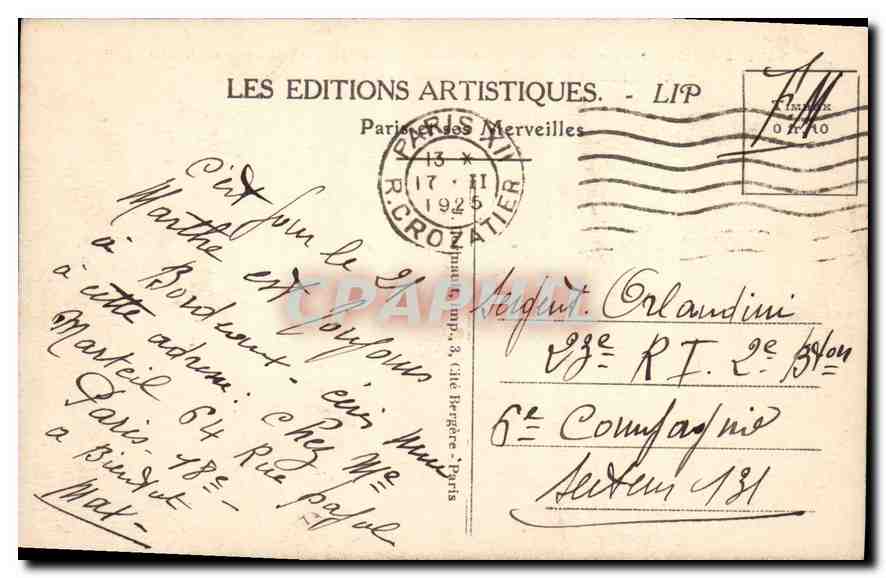 LES EDITIONS ARTISTIQUES. - LIP
Paris et ses Merveilles
PARIS XII
13 X
17 · II
1925
R. CROZATIER
TIMBRE
0 fr. 10
FM
c'est pour le 21
Marthe est toujours
à Bordeaux - écris
à cette adresse: Chez Me
Marteil 64 Rue Pajol
Paris 18e -
a Bientot
Max -
Imp., 3, Cité Bergère - Paris
CPAPHIL
Sergent. Orlandini
23e R I. 2e Bton
6e Compagnie
Secteur 131